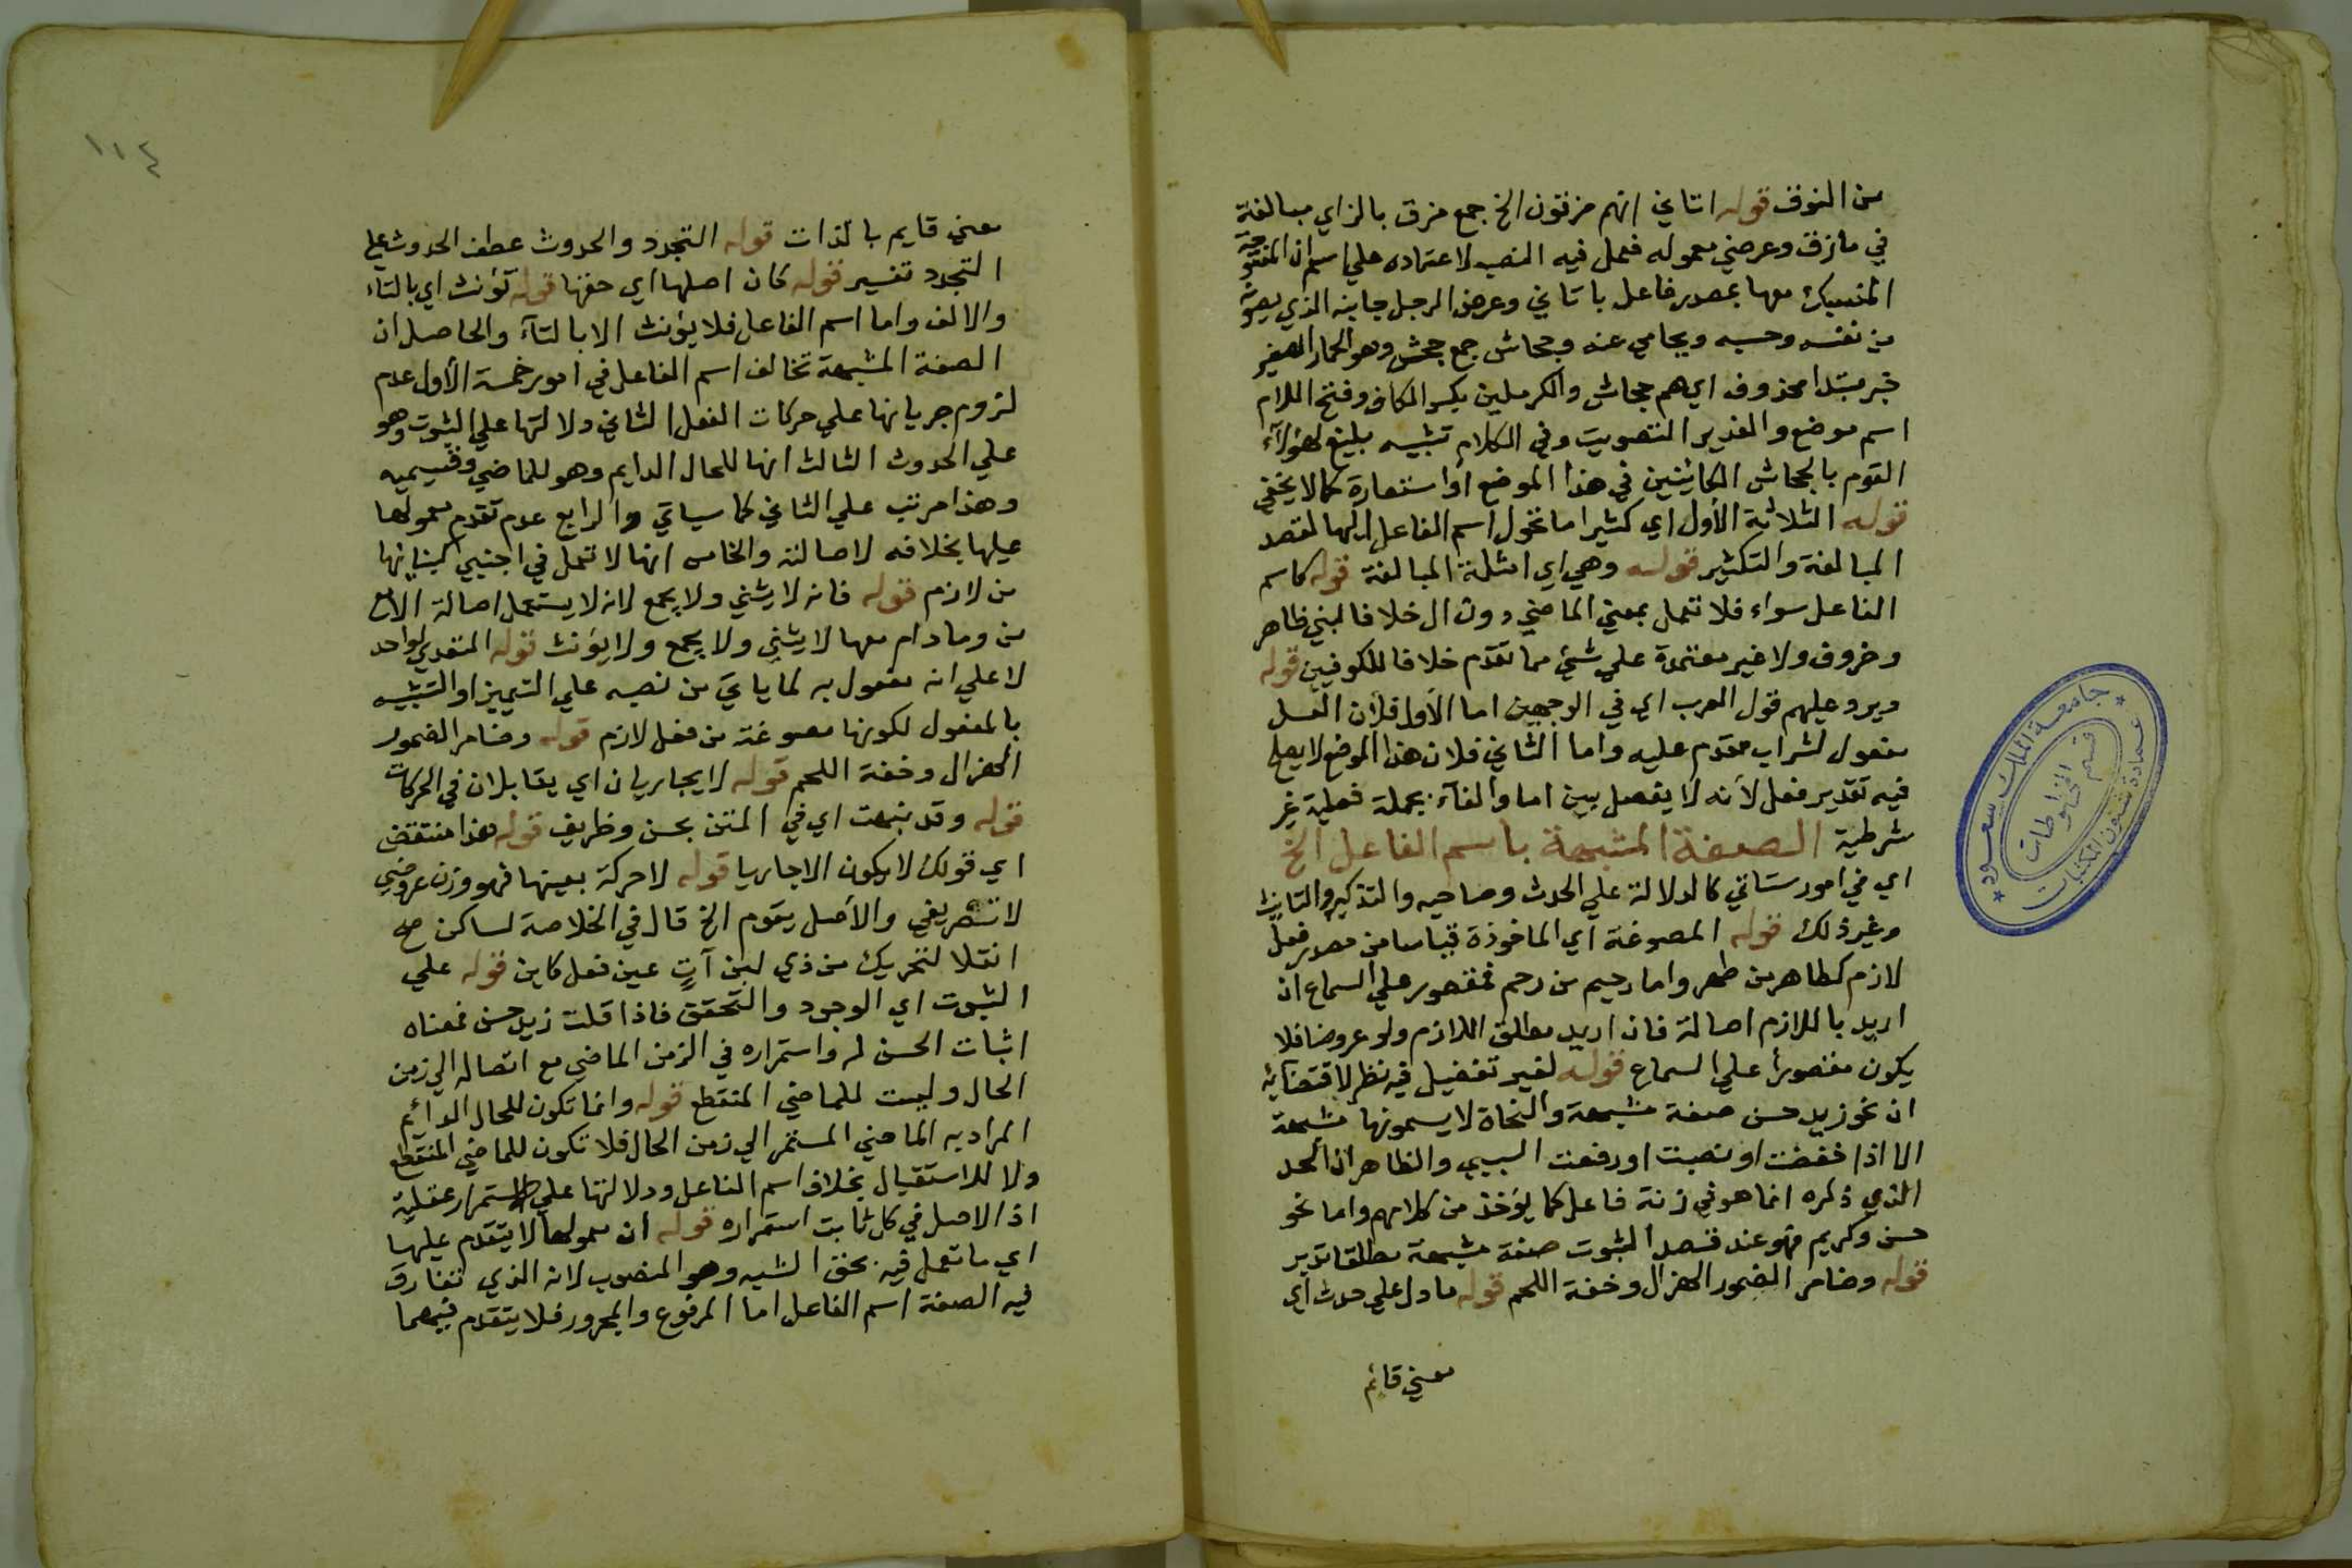 من النوق قوله اتاني انهم مزقون الخ جمع مزق بالزاي مبالغة
في مازق وعرضي معموله فعمل فيه النصب لاعتماده علي اسم ان المفتوحة
المنسبك معها بمصدر فاعل باتاني وعرض الرجل جانبه الذي يصونه
من نفسه وحسبه ويحامي عنه وجحاش جمع جحش وهو الحمار الصغير
خبر مبتدا محذوف اي هم جحاش والكرملين بكسر الكاف وفتح اللام
اسم موضع والفديد التصويت وفي الكلام تشبيه بليغ لهؤلآء
القوم بالجحاش الكائنين في هذا الموضع او استعارة كما لا يخفي
قوله الثلاثة الأول اي كثيرا ما تحول اسم الفاعل اليها لقصد
المبالغة والتكثير قوله وهي اي امثلة المبالغة قوله كاسم
الفاعل سواء فلا تعمل بمعني الماضي دون ال خلافا لبني طاهر
وخروف ولا غير معتمدة علي شئ مما تقدم خلافا للكوفيين قوله
ويرد عليهم قول العرب اي في الوجهين اما الأول فلأن العسل
مفعول لشراب مقدم عليه واما الثاني فلان هذا الموضع لا يصلح
فيه تقدير فعل لأنه لا يفصل بين اما والفآء بجملة فعلية غير
شرطية الصفة المشبهة باسم الفاعل الخ
اي في امور ستاتي كالدلالة علي الحدث وصاحبه والتذكير والتانيث
وغير ذلك قوله المصوغة اي الماخوذة قياسا من مصدر فعل
لازم كطاهر من طهر واما رحيم من رحم فمقصور علي السماع ان
اريد باللازم اصالة فان اريد مطلق اللازم ولو عروضا فلا
يكون مقصورا علي السماع قوله لغير تفضيل فيه نظر لاقتضائه
ان نحو زيد حسن صفة مشبهة والنحاة لا يسمونها مشبهة
الا اذا خفضت او نصبت او رفعت السببي والظاهر ان الحد
الذي ذكره انما هو في زنة فاعل كما يؤخذ من كلامهم واما نحو
حسن وكريم فهو عند قصد الثبوت صفة مشبهة مطلقا تدبر
قوله وضامر الضمور الهزال وخفة اللحم قوله ما دل علي حدث اي
معني قائم
جامعة الملك سعود
عمادة شئون المكتبات
قسم المخطوطات
١١٤
معني قايم بالذات قوله التجدد والحدوث عطف الحدوث علي
التجدد تفسير قوله كان اصلها اي حقها قوله تؤنث اي بالتاء
والالف واما اسم الفاعل فلا يؤنث الا بالتآء والحاصل ان
الصفة المشبهة تخالف اسم الفاعل في امور خمسة الأول عدم
لزوم جريانها علي حركات الفعل الثاني دلالتها علي الثبوت وهو
علي الحدوث الثالث انها للحال الدايم وهو للماضي وقسيميه
وهذا مرتب علي الثاني كما سياتي والرابع عدم تقدم معمولها
عليها بخلافه لاصالته والخامس انها لا تعمل في اجنبي لبنائها
من لازم قوله فانه لا يثني ولا يجمع لانه لا يستعمل اصالة الا مع
من وما دام معها لا يثني ولا يجمع ولا يؤنث قوله المتعدي لواحد
لا علي انه مفعول به لما ياتي من نصبه علي التمييز او التشبيه
بالمفعول لكونها مصوغة من فعل لازم قوله وضامر الضمور
الهزال وخفة اللحم قوله لا يجاريان اي يقابلان في الحركات
قوله وقد نبهت اي في المتن بحسن وظريف قوله هذا منتقض
اي قولك لا يكون الا جاريا قوله لا حركة بعينها فهو وزن عروضي
لا تصريفي والأصل يقوم الخ قال في الخلاصة لساكن صح
انقلا لتحريك من ذي لين آتٍ عين فعل كابن قوله علي
الثبوت اي الوجود والتحقق فاذا قلت زيد حسن فمعناه
اثبات الحسن له واستمراره في الزمن الماضي مع اتصاله الي زمن
الحال وليست للماضي المنقطع قوله وانما تكون للحال الدائم
المراد به الماضي المستمر الي زمن الحال فلا تكون للماضي المنقطع
ولا للاستقبال بخلاف اسم الفاعل ودلالتها علي الاستمرار عقلية
اذ الاصل في كل ثابت استمراره قوله ان معمولها لا يتقدم عليها
اي ما تعمل فيه بحق الشبه وهو المنصوب لانه الذي تفارق
فيه الصفة اسم الفاعل اما المرفوع والمجرور فلا يتقدم فيهما